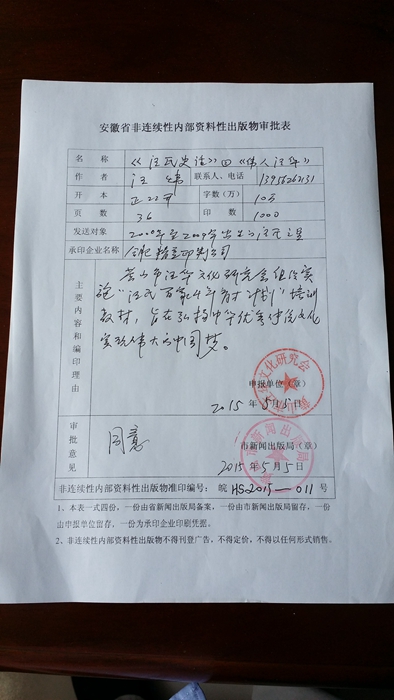 安徽省非连续性内部资料性出版物审批表
名 称 《汪氏史话》四《伟人汪华》
作 者 汪 联系人、电话
开 本 正 开 字数(万) 10万
页 数 36 印 数 1000
发送对象 2000年至2009年出生的汪氏之星
承印企业名称 合肥精艺印刷公司
主要内容和编印理由
黄山市汪华文化研究会组织实
施"汪氏百家4年育才计划"培训
教材,旨在弘扬中华优秀传统文化
实现伟大的中国梦。
申报单位(章)
2015年5月5日
审批意见
同意
市新闻出版局(章)
2015年5月5日
非连续性内部资料性出版物准印编号:皖 HS2015—011号
1、本表一式四份,一份由省新闻出版局备案,一份由市新闻出版局留存,一份
由申报单位留存,一份为承印企业印刷凭据。
2、非连续性内部资料性出版物不得刊登广告,不得定价,不得以任何形式销售。